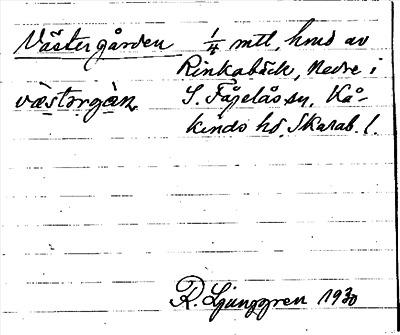 Västergården 1/4 mtl, hmd av
Rinkabäck, Nedre i
væstərgàn, S. Fågelås sn, Kå-
kinds hd, Skarab. l.
R. Ljunggren 1930